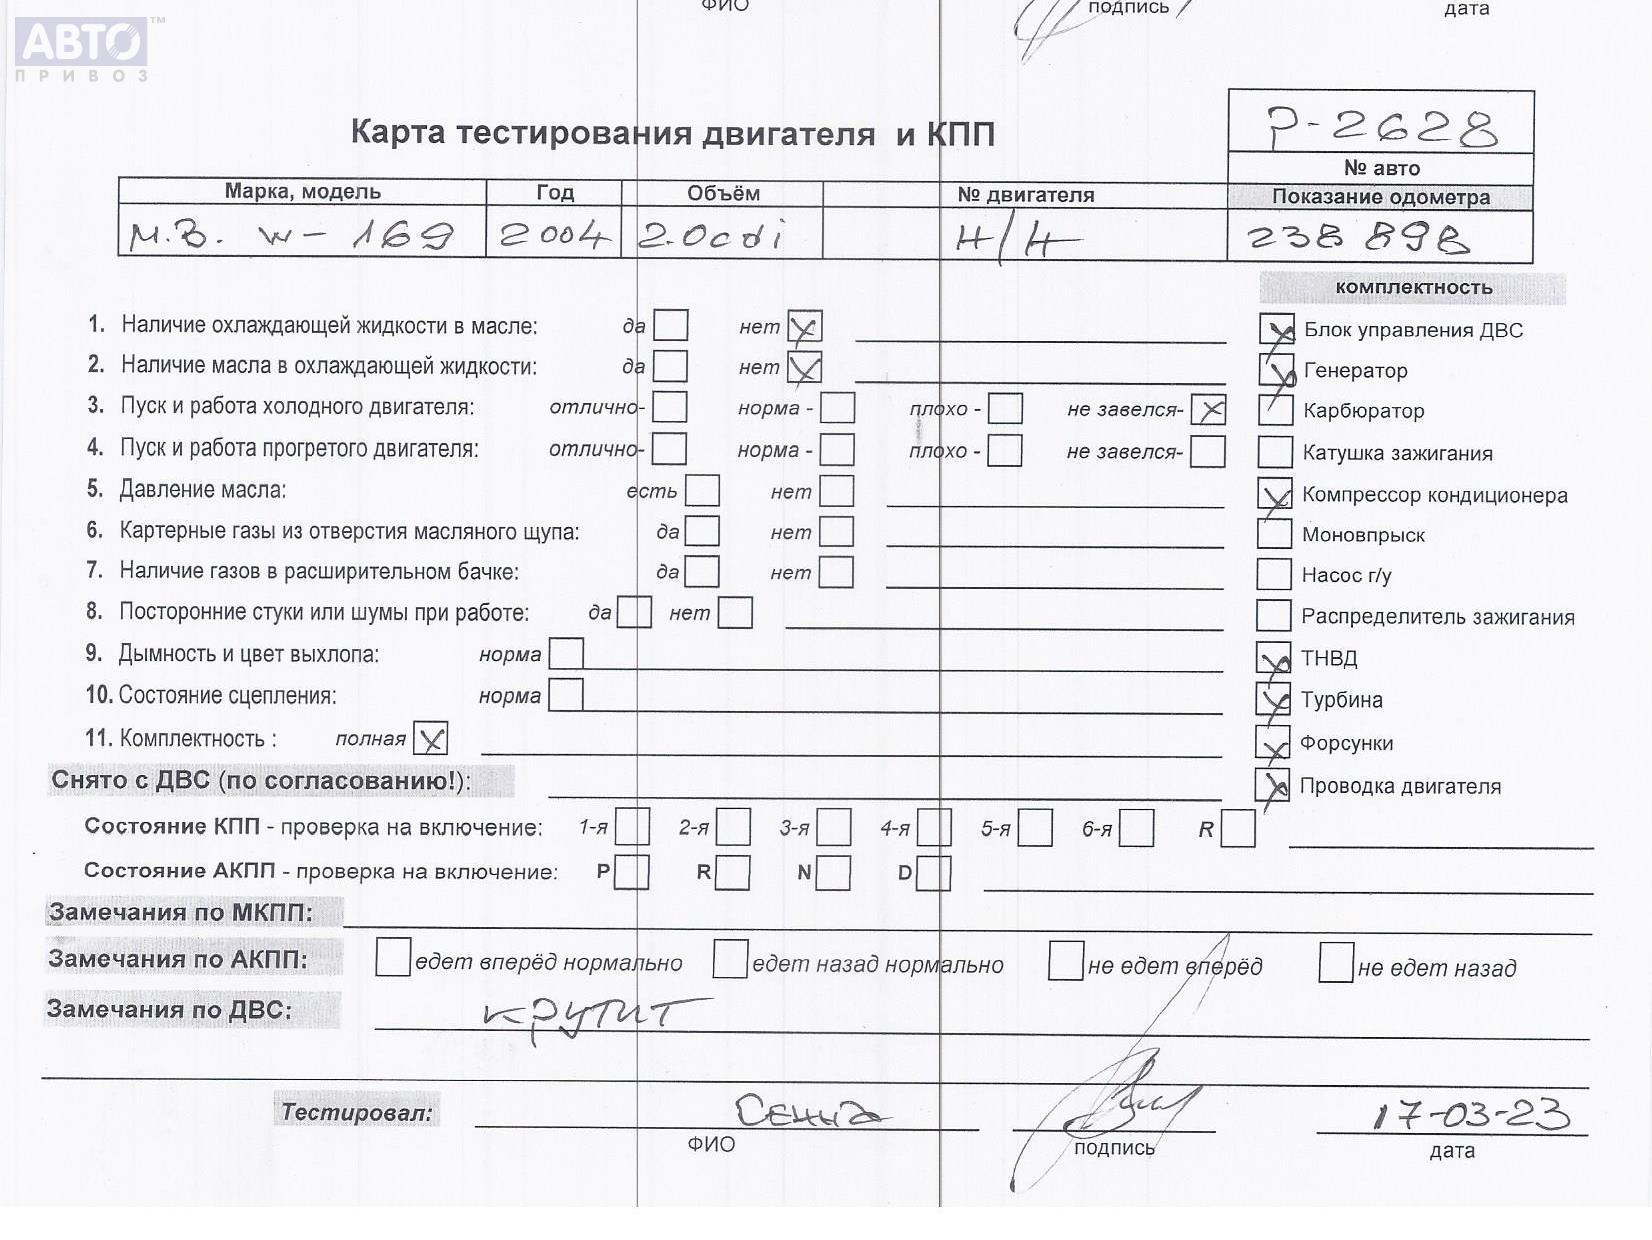 ФИО подпись дата
АВТО™
ПРИВОЗ
Карта тестирования двигателя и КПП
Р-2628
№ авто
Марка, модель Год Объём № двигателя Показание одометра
М.В. W-169 2004 2.0cdi Н/Н 238 898
комплектность
1. Наличие охлаждающей жидкости в масле: да нет X
Блок управления ДВС
2. Наличие масла в охлаждающей жидкости: да нет X
Генератор
3. Пуск и работа холодного двигателя: отлично- норма - плохо - не завелся- X
Карбюратор
4. Пуск и работа прогретого двигателя: отлично- норма - плохо - не завелся-
Катушка зажигания
5. Давление масла: есть нет
Компрессор кондиционера
6. Картерные газы из отверстия масляного щупа: да нет
Моновпрыск
7. Наличие газов в расширительном бачке: да нет
Насос г/у
8. Посторонние стуки или шумы при работе: да нет
Распределитель зажигания
9. Дымность и цвет выхлопа: норма
ТНВД
10. Состояние сцепления: норма
Турбина
11. Комплектность : полная X
Форсунки
Снято с ДВС (по согласованию!):
Проводка двигателя
Состояние КПП - проверка на включение: 1-я 2-я 3-я 4-я 5-я 6-я R
Состояние АКПП - проверка на включение: P R N D
Замечания по МКПП:
Замечания по АКПП: едет вперёд нормально едет назад нормально не едет вперёд не едет назад
Замечания по ДВС: крутит
Тестировал: 17-03-23
ФИО подпись дата